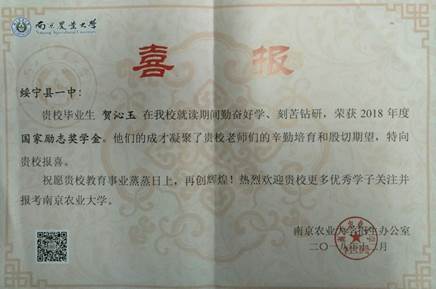 南京农业大学
Nanjing Agricultural University
喜报
绥宁县一中：
贵校毕业生 贺沁玉 在我校就读期间勤奋好学、刻苦钻研，荣获 2018 年度
国家励志奖学金。他们的成才凝聚了贵校老师们的辛勤培育和殷切期望，特向
贵校报喜。
祝愿贵校教育事业蒸蒸日上，再创辉煌！热烈欢迎贵校更多优秀学子关注并
报考南京农业大学。
南京农业大学招生办公室
二〇一 年 二月